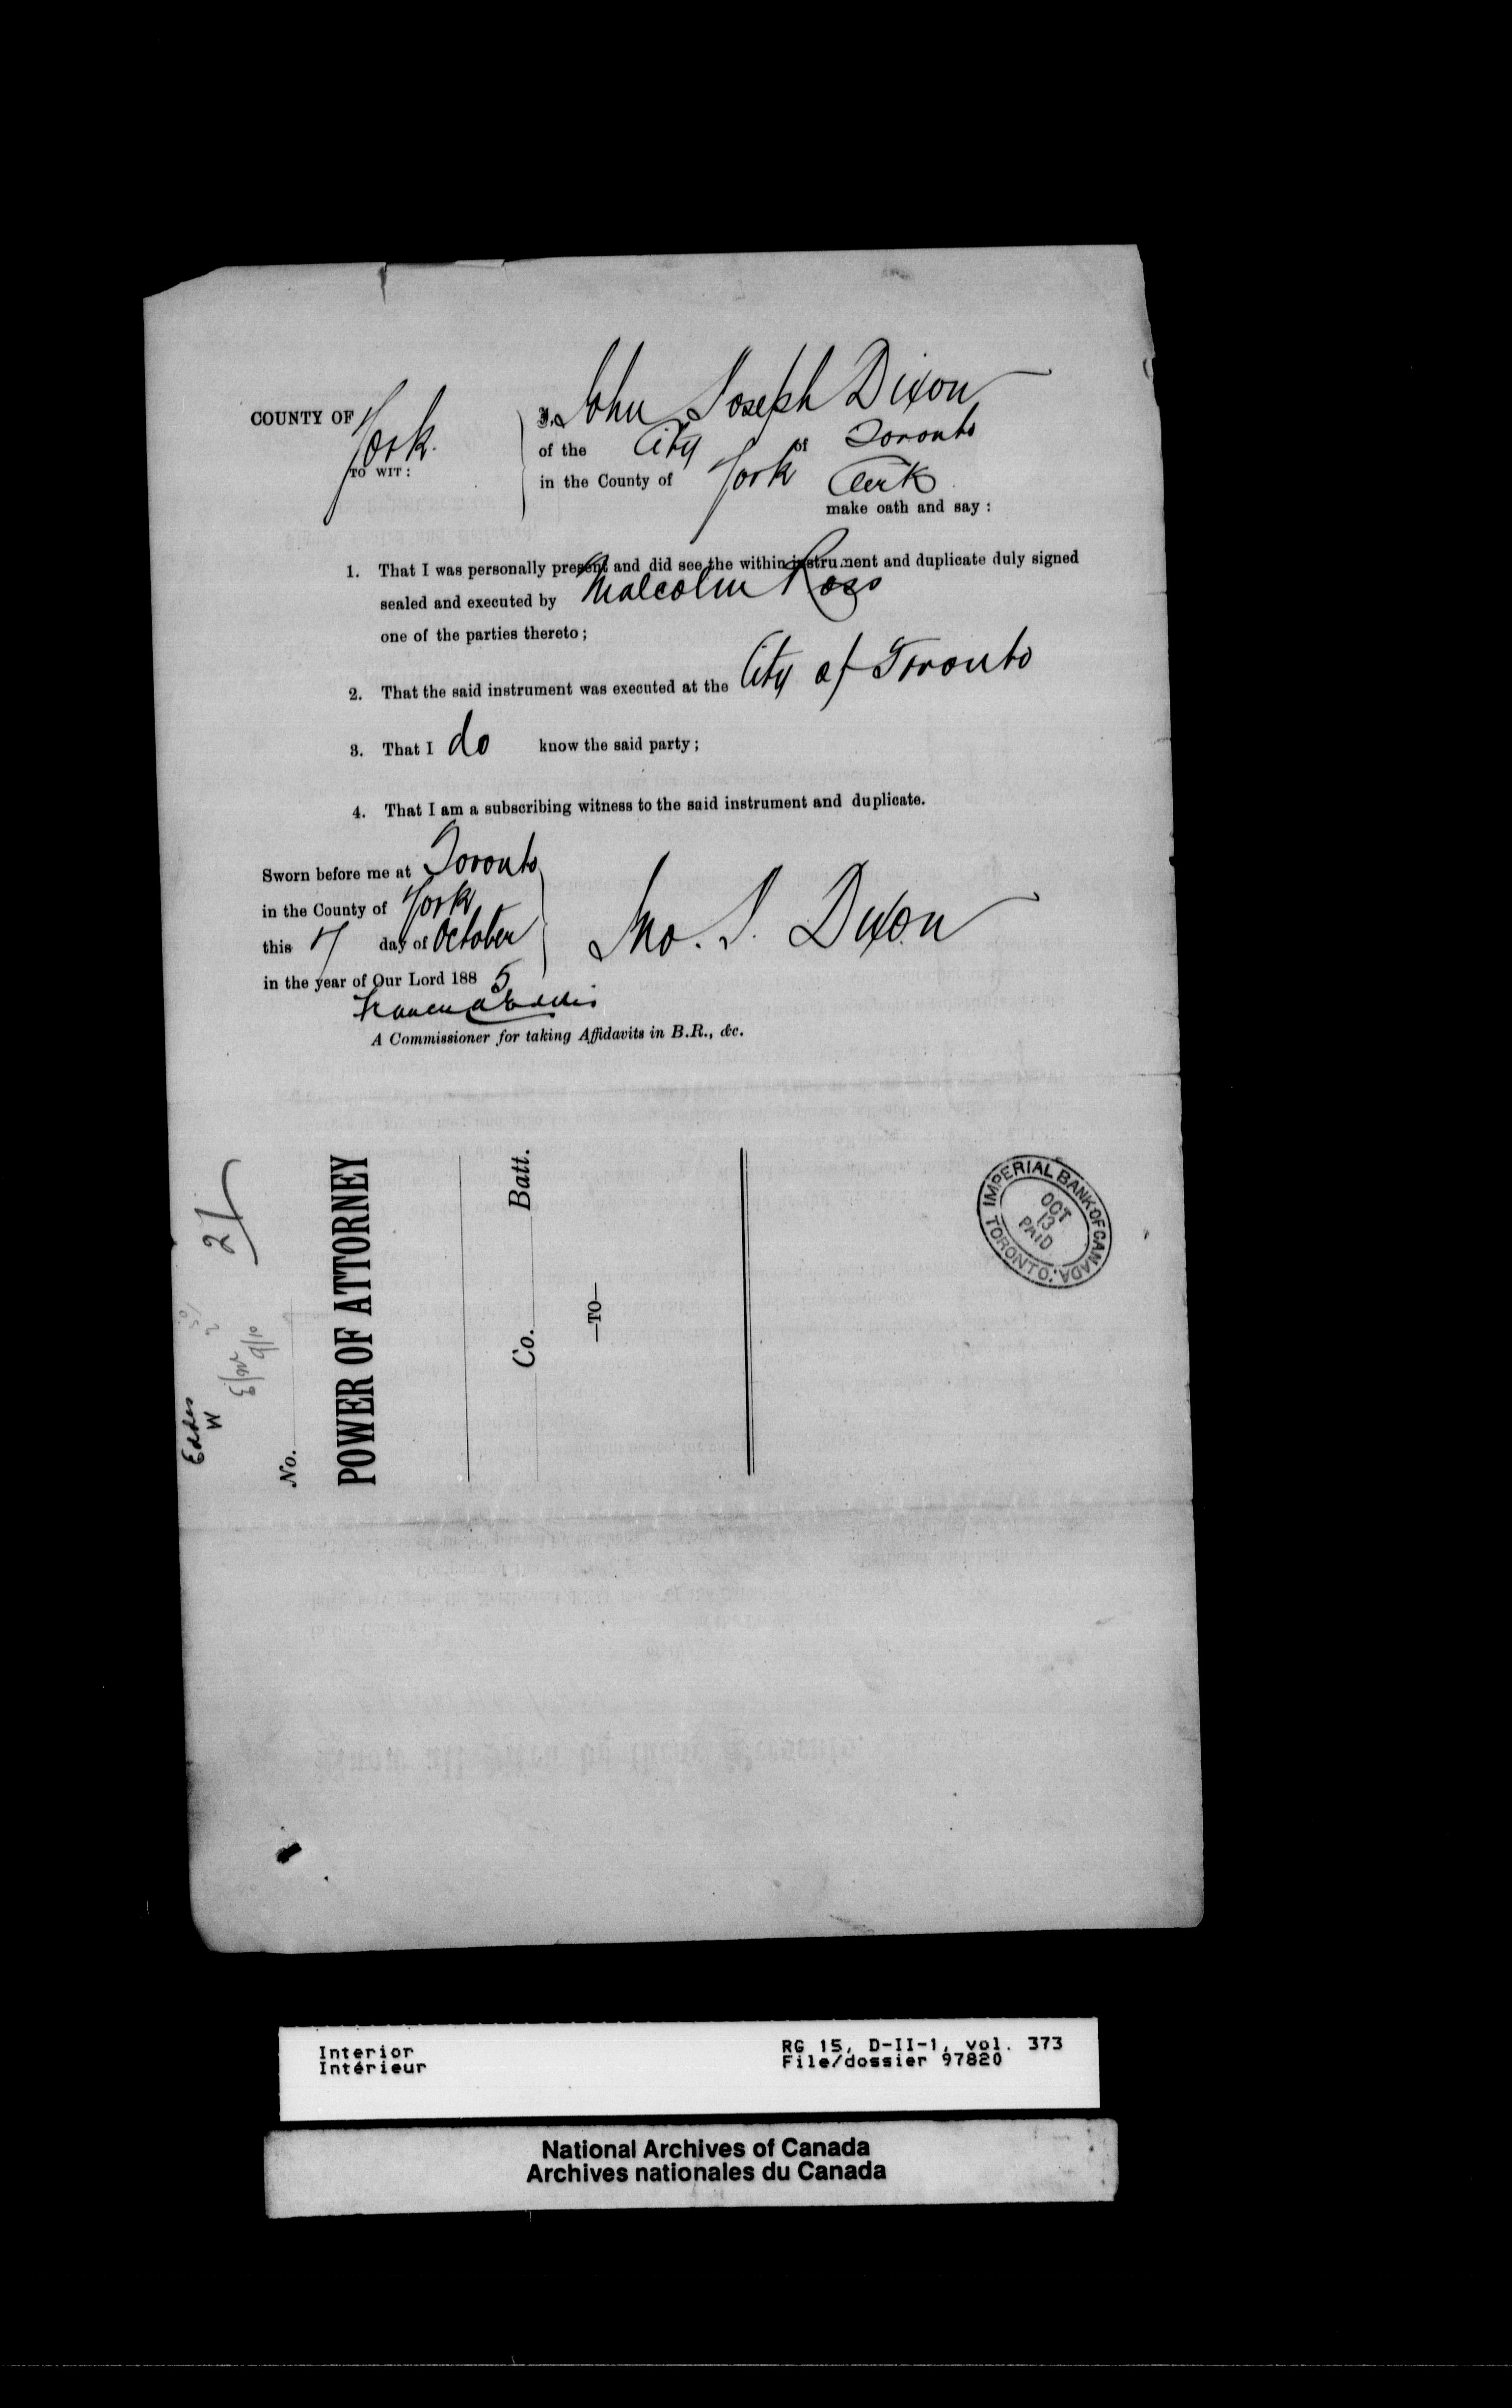 COUNTY OF York.
TO WIT:
I, John Joseph Dixon
of the City of Toronto
in the County of York Clerk
make oath and say:
1. That I was personally present and did see the within instrument and duplicate duly signed
sealed and executed by Malcolm Ross
one of the parties thereto;
2. That the said instrument was executed at the City of Toronto
3. That I do know the said party;
4. That I am a subscribing witness to the said instrument and duplicate.
Sworn before me at Toronto
in the County of York
this 7 day of October
in the year of Our Lord 1885
Jno. J. Dixon
A Commissioner for taking Affidavits in B.R., &c.
No.
POWER OF ATTORNEY
Co. Batt.
—TO—
IMPERIAL BANK OF CANADA
TORONTO.
OCT
13
PAID
Interior
Intérieur
RG 15, D-II-1, vol. 373
File/dossier 97820
National Archives of Canada
Archives nationales du Canada